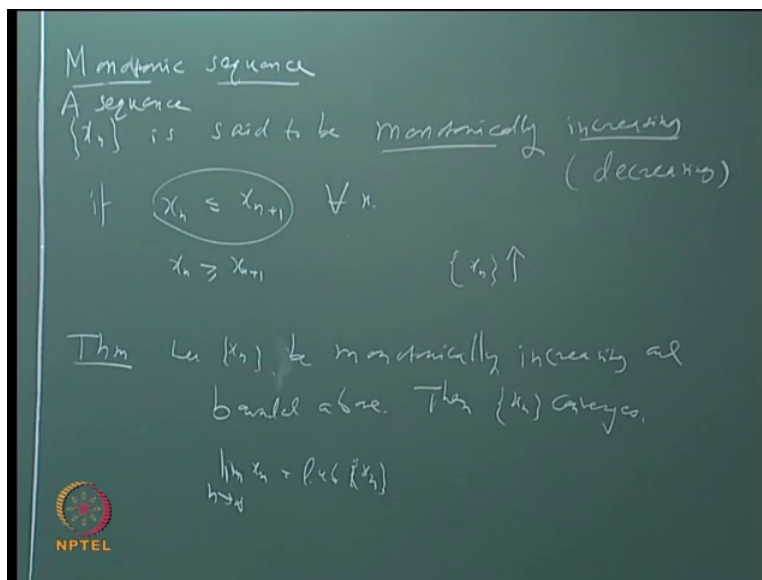 Monotonic sequence
A sequence
{xn} is said to be monotonically increasing
(decreasing)
if xn ≤ xn+1 ∀ n.
xn ≥ xn+1 {xn}↑
Thm Let {xn} be monotonically increasing and
bounded above. Then {xn} converges.
lim n→∞ xn = l.u.b {xn}
NPTEL